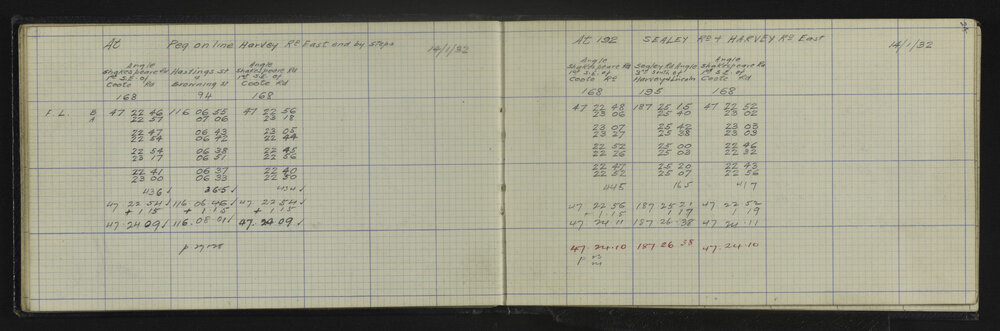 At Peg on line Harvey Rd East end by steps 14/1/32
Angle Angle
Shakespeare Rd Hastings st Shakespeare Rd
1st S.E. of 1st S.E. of
Coote Rd Browning st Coote Rd
168 94 168
F. L. B 47 22 46 116 06 55 47 22 56
A 22 57 07 06 23 18
22 47 06 43 23 05
22 54 06 42 22 44
22 54 06 38 22 45
23 17 06 51 22 56
22 41 06 37 22 40
23 00 06 33 22 50
436 √ 365 √ 434 √
47 22 54 √ 116 06 46 √ 47 22 54 √
+ 1 15 + 1 15 + 1 15
47. 24 09 √ 116. 08. 01 √ 47. 24 09 √
At 192 SEALEY Rd + HARVEY Rd East 14/1/32
Angle Angle
Shakespeare Rd Sealey Rd Angle Shakespeare Rd
1st S.E. of 3rd South of 1st S.E. of
Coote Rd Harvey + Lincoln Coote Rd
168 195 168
47 22 48 187 25 15 47 22 52
23 06 25 40 23 02
23 07 25 42 23 03
23 27 25 38 23 09
22 52 25 00 22 46
22 26 25 03 22 32
22 47 25 20 22 43
22 52 25 07 22 56
445 165 417
47 22 56 187 25 21 47 22 52
+ 1 15 1 17 1 19
47 24 11 187 26. 38 47 24. 11
47. 24. 10 187 26. 38 47. 24. 10